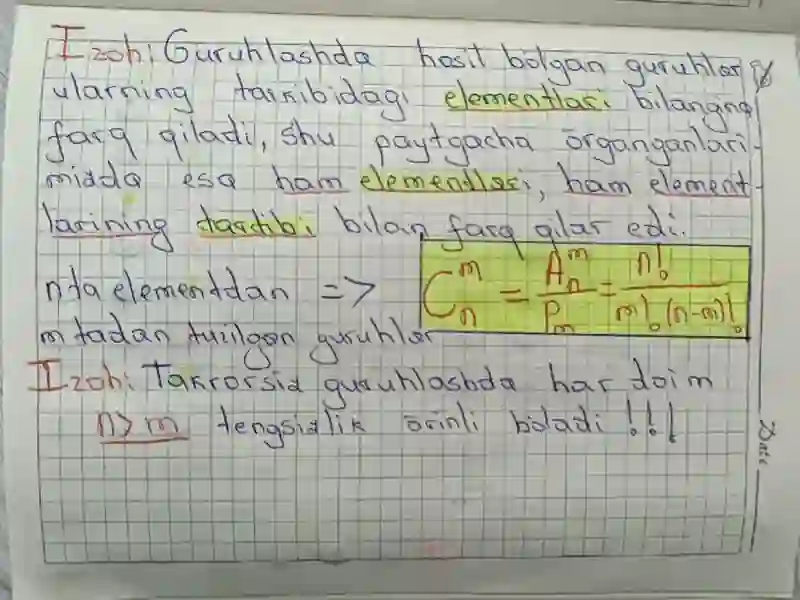 Izoh: Guruhlashda hosil bolgan guruhlar
ularning tarkibidagi elementlari bilangna
farq qiladi, shu paytgacha organganlari-
mizda esa ham elementlari, ham element-
larining tartibi bilan farq qilar edi.
nta elementdan => C_n^m = A_n^m / P_m = n! / m!·(n-m)!
m tadan tuzilgan guruhlar
Izoh: Takrorsiz guruhlashda har doim
n>m tengsizlik orinli boladi !!!
Date